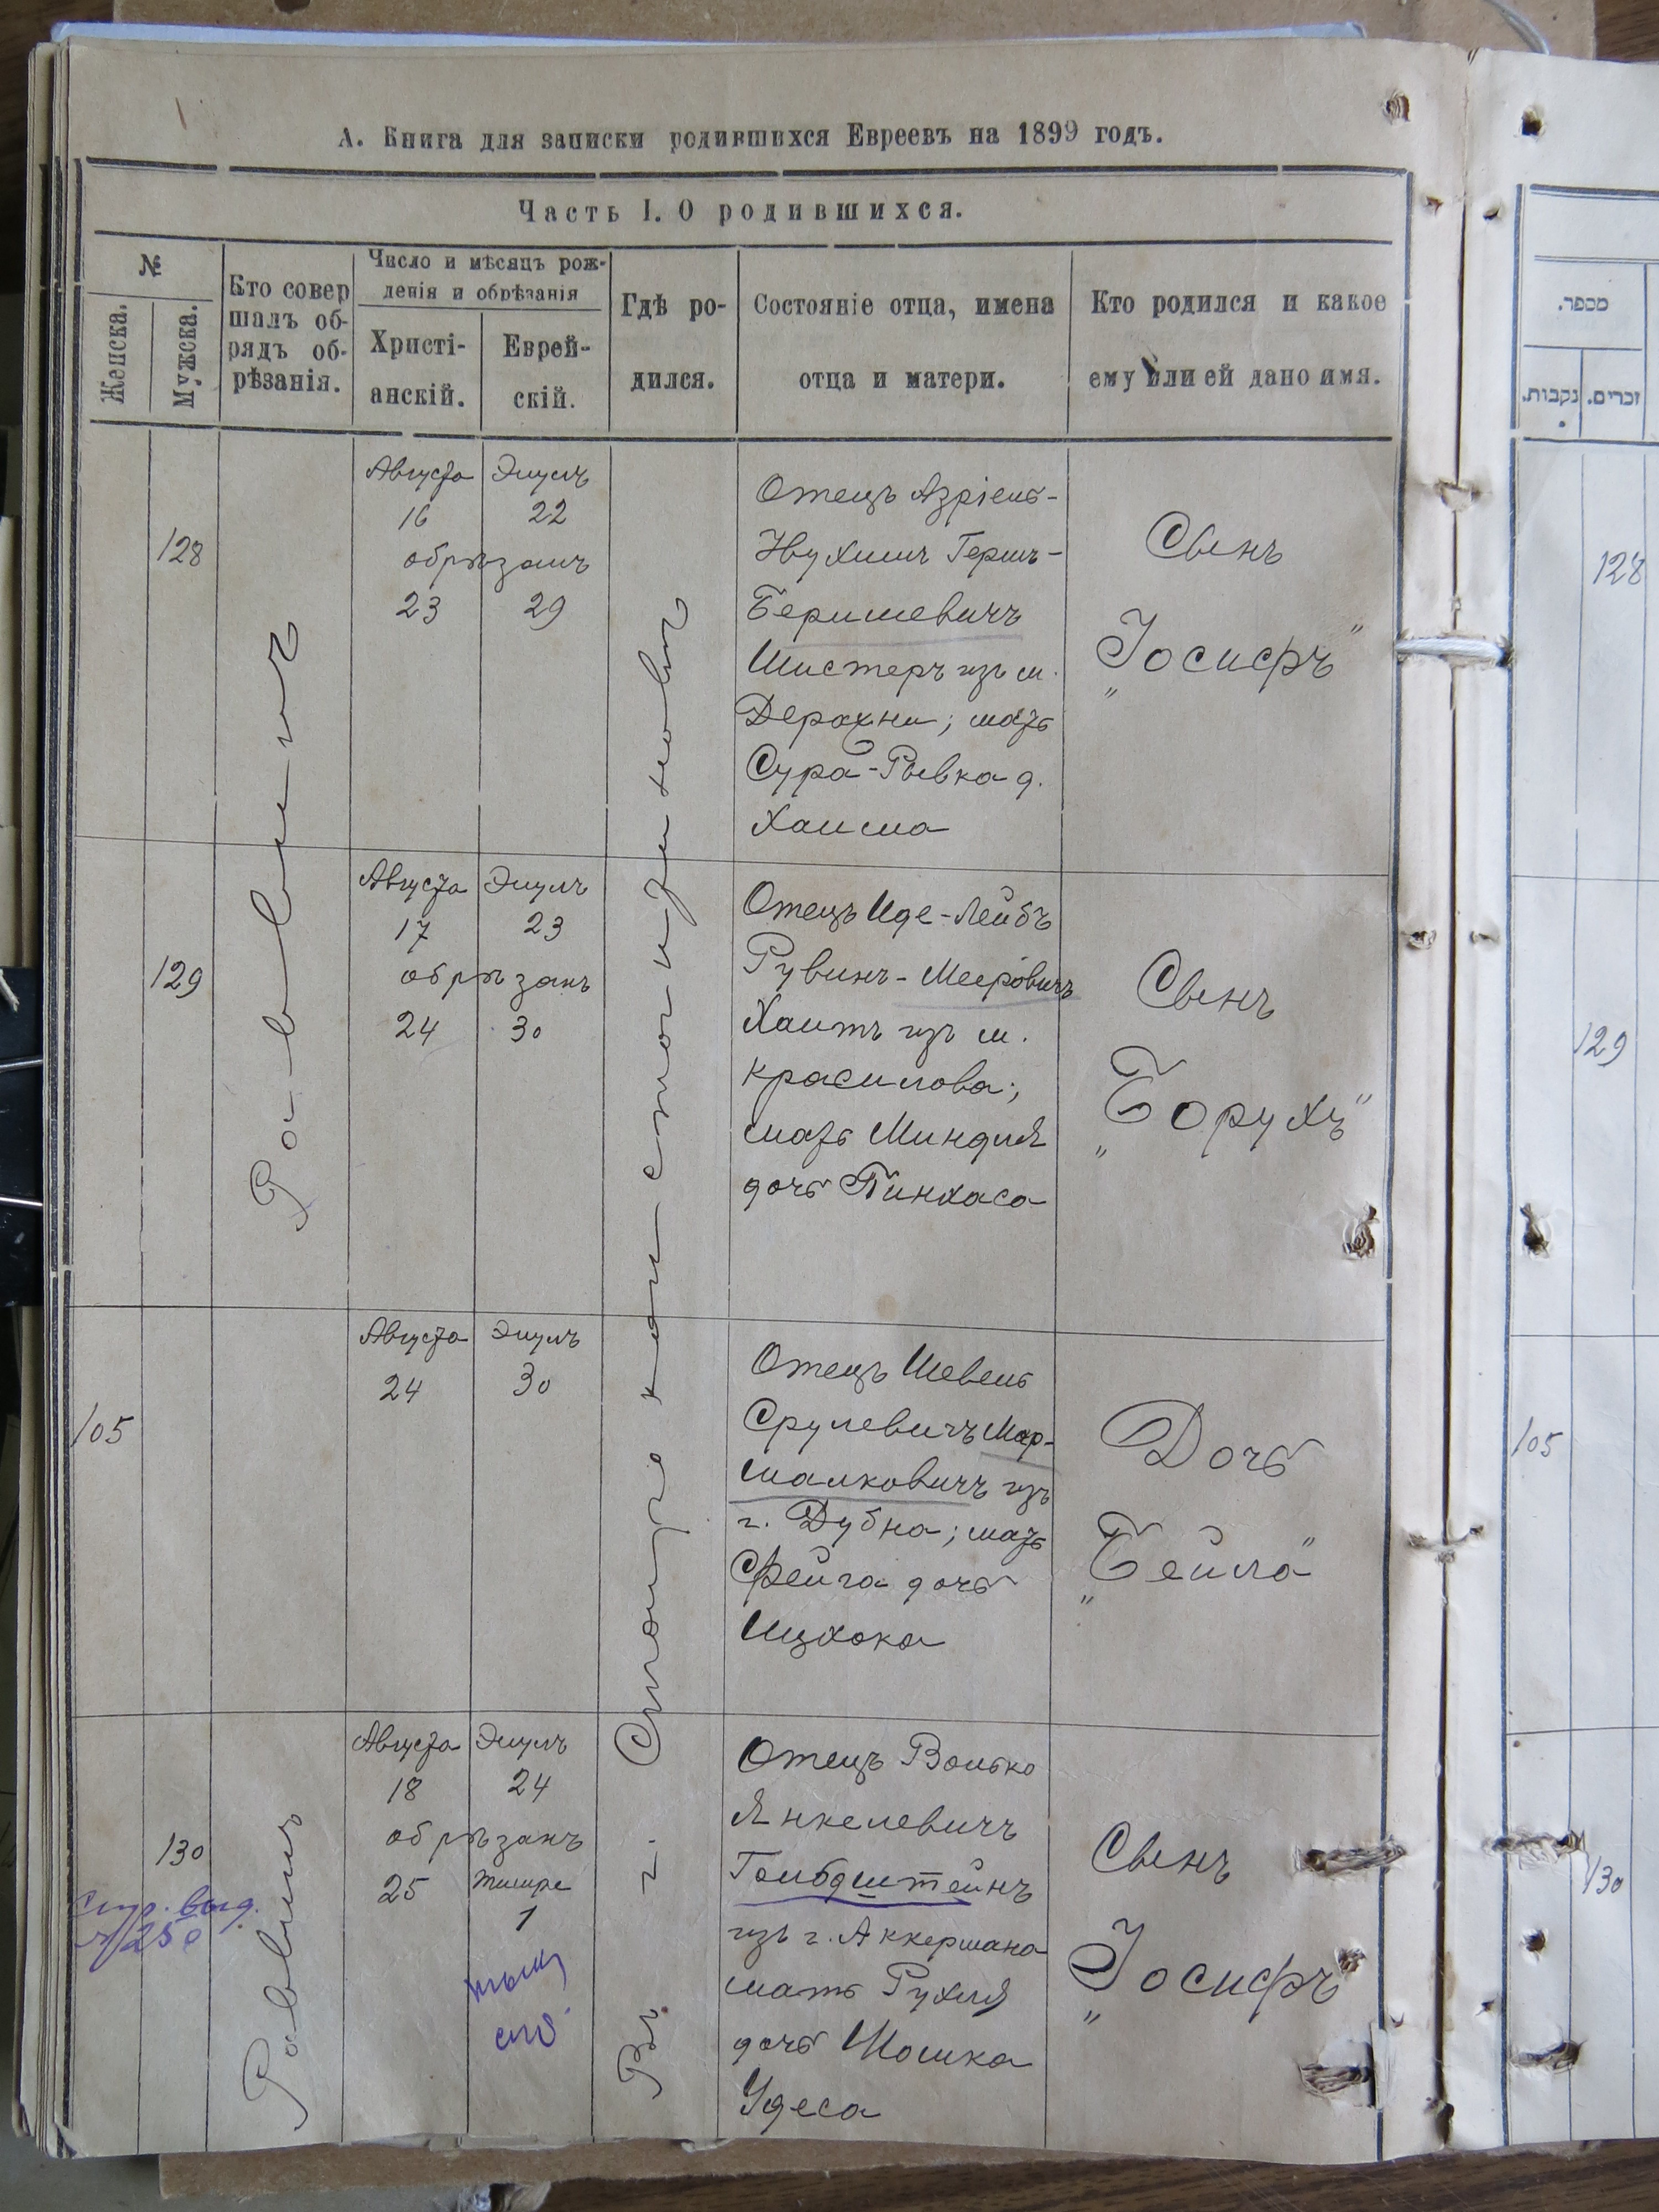 А. Книга для записки родившихся Евреевъ на 1899 годъ.
Часть I. О родившихся.
№
Женска.
Мужска.
Кто совер
шалъ об-
рядъ об-
рѣзанія.
Число и мѣсяцъ рож-
денія и обрѣзанія
Христі-
анскій.
Еврей-
скій.
Гдѣ ро-
дился.
Состояніе отца, имена
отца и матери.
Кто родился и какое
ему или ей дано имя.
Раввинъ
Въ г. Староконстантиновѣ
128
Августа Элулъ
16 22
обрѣзанъ
23 29
Отецъ Азріель-
Нухимъ Гершъ-
Беришевичъ
Шистеръ изъ м.
Деражни; мать
Сура-Ривка д.
Хаима
Сынъ
"Іосифъ"
129
Августа Элулъ
17 23
обрѣзанъ
24 30
Отецъ Иде-Лейбъ
Рувинъ-Мееровичъ
Хаитъ изъ м.
Красилова;
мать Миндля
дочь Пинхаса
Сынъ
"Борухъ"
105
Августа Элулъ
24 30
Отецъ Шевель
Срулевичъ Мар-
шалковичъ изъ
г. Дубна; мать
Фейга дочь
Ицхока
Дочь
"Бейла"
130
Раввинъ
Августа Элулъ
18 24
обрѣзанъ
25 Тишре
1
Отецъ Волько
Янкелевичъ
Гольдштейнъ
изъ г. Аккермана
мать Рухля
дочь Мошка
Удеса
Сынъ
"Іосифъ"
מספר.
נקבות.
זכרים.
128
129
105
130